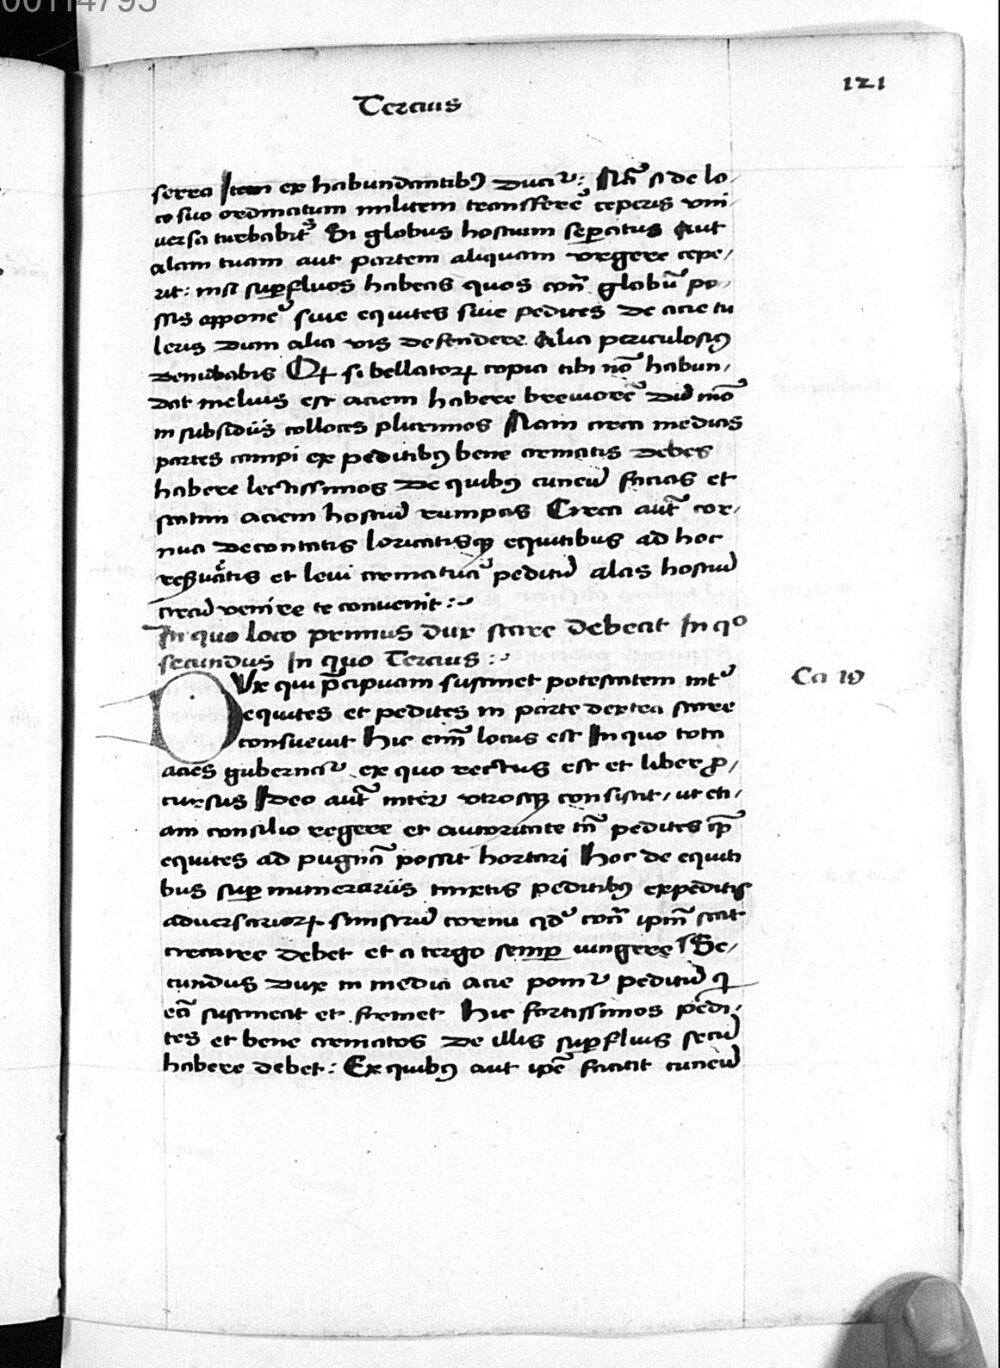 00114795
Tercius
121
serra Item ex habundantibꝰ ducir᷑: Nā si de lo-
co suo ordinatum militem transferre᷑ ceperis vni-
uersa turbabit᷑ Si globus hostium seꝑatus Aut
alam tuam aut partem aliquam vrgere cepe-
rit: nisi suꝑfluos habeas quos con̄ globū po-
ssis opponē siue equites siue pedites de acie tu
leris dum alia vis defendere Alia periculosiꝰ
denudabis Qꝛ si bellatorꝝ copia tibi nō habun-
dat melius est aciem habere breuiorē dū mō
in subsidiis colloces plurimos Nam circa medias
partes campi ex peditibꝰ bene armatis debes
habere lectissimos de quibꝰ cuneū facias et
statim aciem hostiū rumpas Circa aut̄ cor-
nua decontatis loricatisqꝫ equitibus ad hoc
reseruātis et leui armatura᷑ peditū alas hostiū
circūuenire te conuenit:~
In quo loco primus dux stare debeat In qº
secundus In quo Tercius:~
DVx qui p̄cipuam sustinet potestatem int᷑
equites et pedites in parte dextra stare
consueuit Hic eni᷑ locus est In quo tota
acies gubernar᷑ ex quo rectus est et liber ꝓ-
cursus Ideo aut̄ inter vtrosqꝫ consistit, ut eti-
am consilio regere et autoritate tā pedites qꝫ
equites ad pugnā possit hortari Hoc de equiti
bus suꝑ numerariis mixtis peditibꝰ expeditis
aduersariorꝝ sinistrū cornu qd᷑ con̄ ipm̄ stat
circare debet et a tergo semꝑ urgere Se-
cundus dux in media acie ponir᷑ peditū qui
eā sustineat et firmet Hic fortissimos pedi-
tes et bene armatos de illis suꝑfluis secū
habere debet: Ex quibꝰ aut ipē faciat cuneū
Ca 19